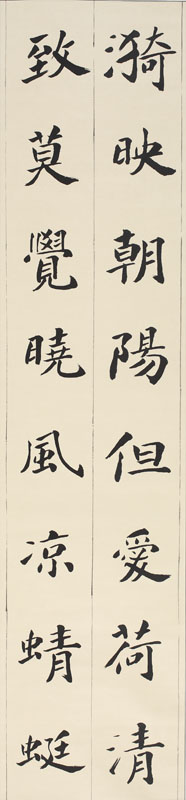 漪映朝陽但愛荷清
致莫覺曉風凉蜻蜓